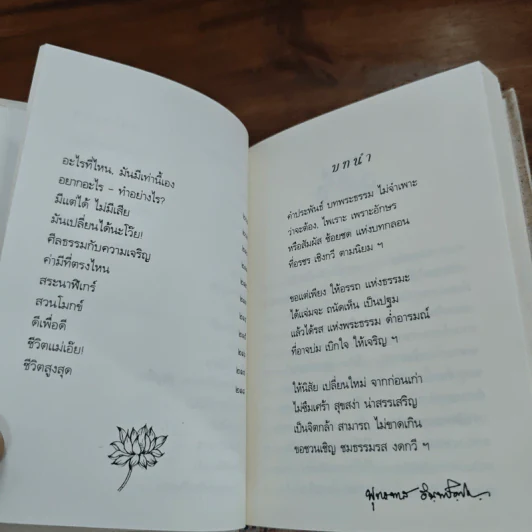 อะไรที่ไหน, มันมีเท่านี้เอง
อยากอะไร - ทำอย่างไร?
มีแต่ได้ ไม่มีเสีย
มันเปลี่ยนได้นะโว๊ย!
ศีลธรรมกับความเจริญ
ค่ามีที่ตรงไหน
สระนาฬิเกร์
สวนโมกข์
ดีเพื่อดี
ชีวิตแม่เอ๊ย!
ชีวิตสูงสุด
บทนำ
คำประพันธ์ บทพระธรรม ไม่จำเพาะ
ว่าจะต้อง, ไพเราะ เพราะอักษร
หรือสัมผัส ช้อยชด แห่งบทกลอน
ที่อรชร เชิงกวี ตามนิยม ฯ
ขอแต่เพียง ให้อรรถ แห่งธรรมะ
ได้แจ่มจะ ถนัดเห็น เป็นปฐม
แล้วได้รส แห่งพระธรรม ด่ำอารมณ์
ที่อาจบ่ม เบิกใจ ให้เจริญ ฯ
ให้นิสัย เปลี่ยนใหม่ จากก่อนเก่า
ไม่ซึมเศร้า สุขสง่า น่าสรรเสริญ
เป็นจิตกล้า สามารถ ไม่ขาดเกิน
ขอชวนเชิญ ชมธรรมรส งดกวี ฯ
พุทธทาส อินทปัญโญ